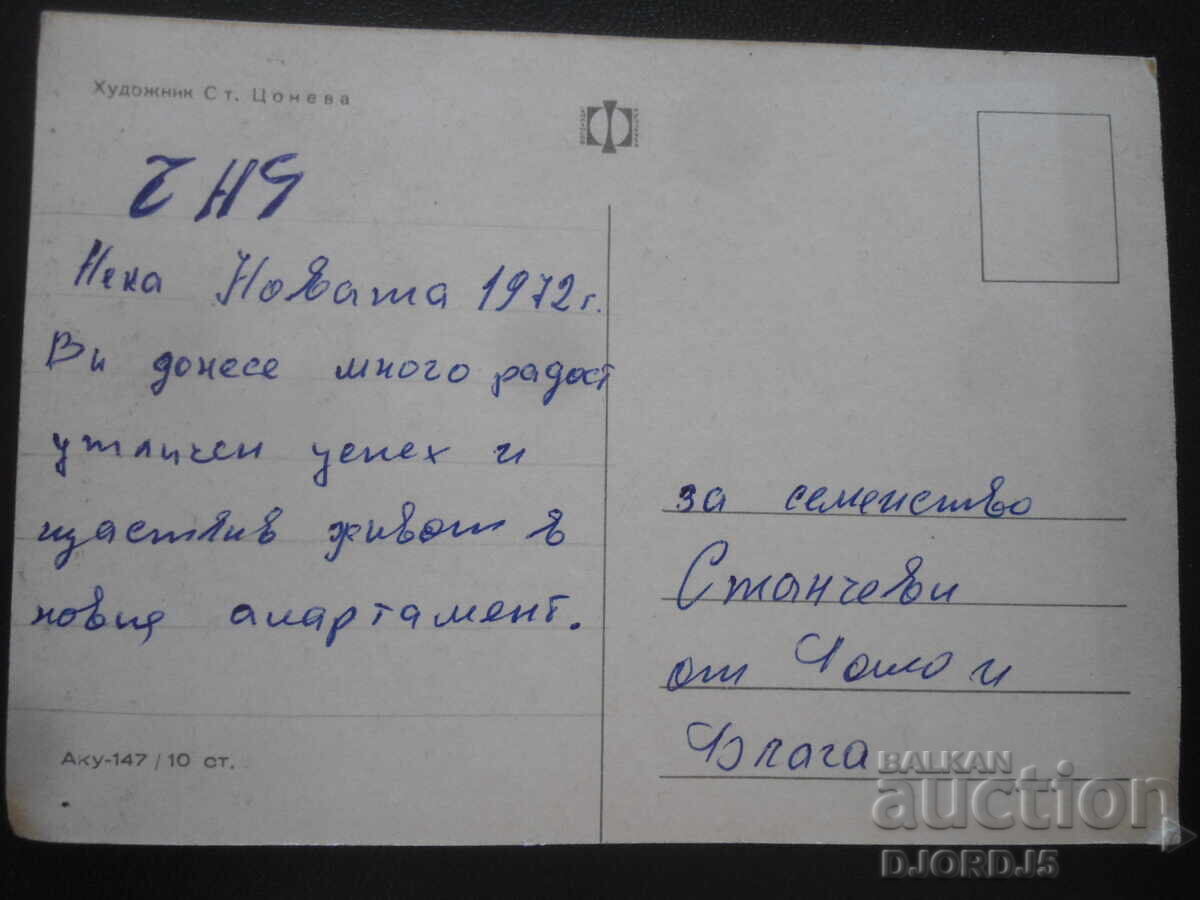 Художник Ст. Цонева
ЧНГ
Нека Новата 1972 г.
Ви донесе много радост
утличен успех и
щастлив живот в
новия апартамент.
Аку-147 / 10 ст.
за семейство
Станчеви
от и
Блага
BALKAN
auction
DJORDJ5